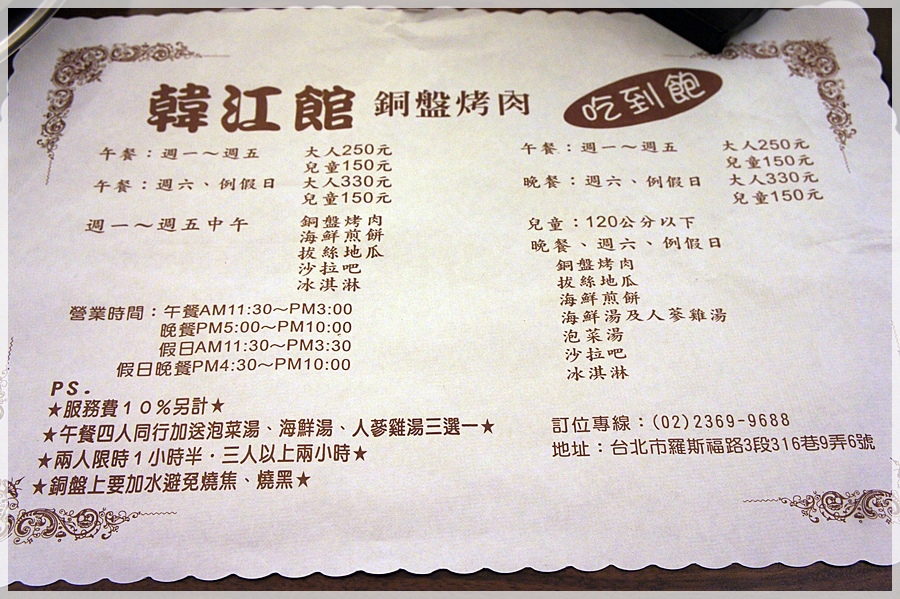 韓江館 銅盤烤肉 吃到飽
午餐：週一～週五 大人250元
兒童150元
午餐：週六、例假日 大人330元
兒童150元
週一～週五中午 銅盤烤肉
海鮮煎餅
拔絲地瓜
沙拉吧
冰淇淋
營業時間：午餐AM11:30～PM3:00
晚餐PM5:00～PM10:00
假日AM11:30～PM3:30
假日晚餐PM4:30～PM10:00
午餐：週一～週五 大人250元
兒童150元
晚餐：週六、例假日 大人330元
兒童150元
兒童：120公分以下
晚餐、週六、例假日
銅盤烤肉
拔絲地瓜
海鮮煎餅
海鮮湯及人蔘雞湯
泡菜湯
沙拉吧
冰淇淋
PS.
★服務費10%另計★
★午餐四人同行加送泡菜湯、海鮮湯、人蔘雞湯三選一★
★兩人限時1小時半．三人以上兩小時★
★銅盤上要加水避免燒焦、燒黑★
訂位專線：(02)2369-9688
地址：台北市羅斯福路3段316巷9弄6號